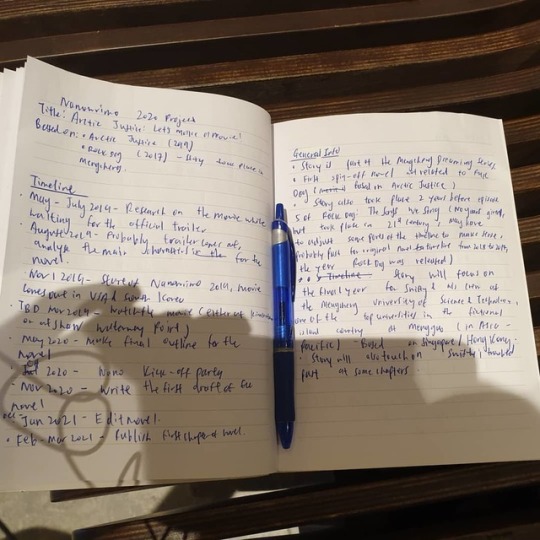 Nanowrimo 2020 Project
Title: Arctic Justice: Let's make a Movie!
Based on: • Arctic Justice (2019)
• Rock Dog (2017) - Story took place in
Mengcheng.
Timeline
• May - July 2019 - Research on the movie while
waiting for the official trailer
• August 2019 - Probably trailer comes out,
analyse the main for the
novel.
• Nov 1 2019 - Start of Nanowrimo 2019, movie
comes out in USA & South Korea
• TBD Mar 2019 - Watch the movie (either at
or at show Waterway Point)
• May 2020 - Make final outline for the
novel
• 2020 - Nano Kick-off party
• Nov 2020 - Write the first draft of the
novel
Jan 2021 - Edit novel.
• Feb - Mar 2021 - Publish first chapter of novel.
General Info
• Story is part of the Mengcheng Dreaming Series
• First spin-off novel not related to Rock
Dog (based on Arctic Justice)
• Story also took place 2 years before episode
5 of Rock Dog: The Series
but took place in 21st century, may have
to adjust some parts of the timeline to make sense,
probably push for original timeline from 2018 to 2019,
the year Rock Dog was released)
• Story will focus on
the final year for Swifty & his crew at
the Mengcheng University of Science & Technology,
one of the top universities in the fictional
island country of (in Asia-
Pacific) - Based on Singapore / Hong Kong.
• Story will also touch on Swifty's troubled
past at some chapters